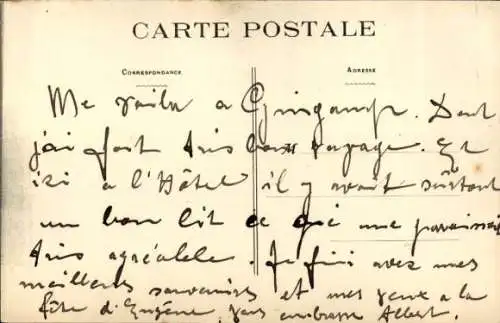 CARTE POSTALE
CORRESPONDANCE
ADRESSE
Me voila a Guingamp. Dont
j'ai fait très bon voyage. Et
ici a l'Hôtel il y avait surtout
un bon lit ce qui me paraissait
très agréable. Je fini avec mes
meilleurs souvenirs et mes vœux a la
fête d'Eugène, vous embrasse Albert.